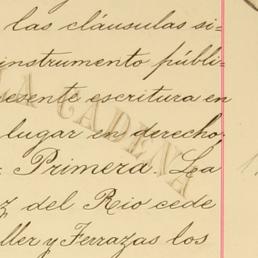 las cláusulas si-
instrumento públi-
esente escritura en
lugar en derecho,
Primera. La
z del Rio cede
ller y Ferrazas los
LA CADENA